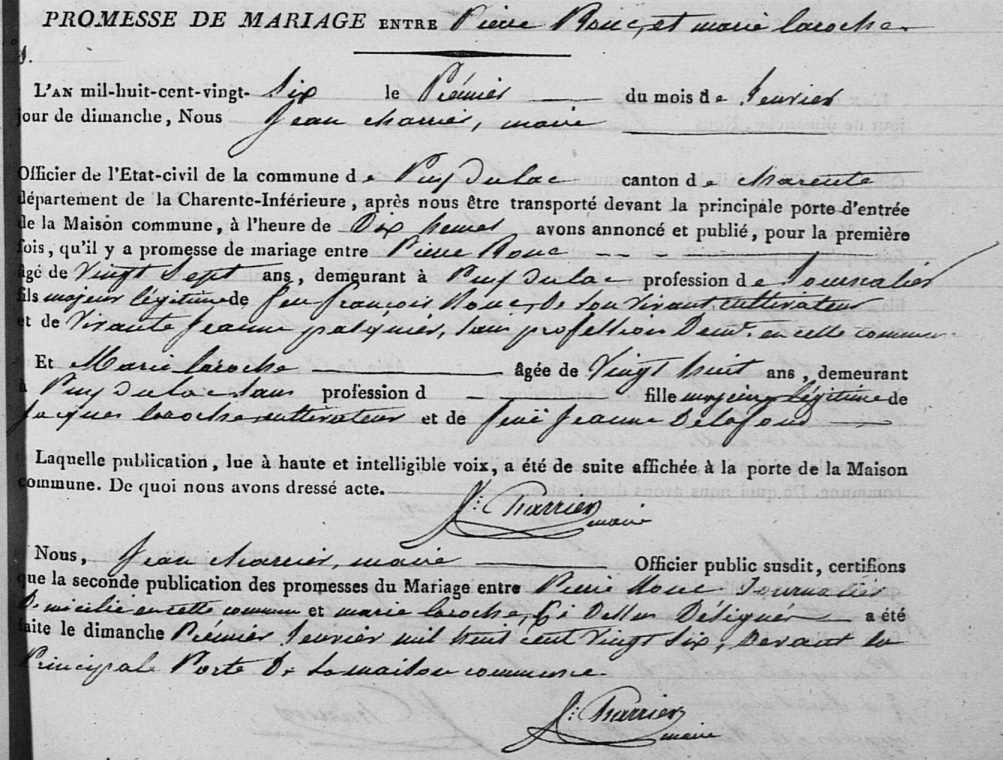 PROMESSE DE MARIAGE ENTRE Pierre Rouc, et marie laroche
L'AN mil-huit-cent-vingt- Six le Prémier du mois de Jenvier
jour de dimanche, Nous Jean charrier, maire
Officier de l'Etat-civil de la commune de Puy du lac canton de charente
département de la Charente-Inférieure, après nous être transporté devant la principale porte d'entrée
de la Maison commune, à l'heure de Dix heures avons annoncé et publié, pour la première
fois, qu'il y a promesse de mariage entre Pierre Rouc
âgé de Vingt Sept ans, demeurant à Puy du lac profession de Journalier
fils majeur légitime de feu françois Rouc, De Son Vivant cultivateur
et de Vivante Jeanne , Sans profession Demt. en cette commune
Et Marie laroche âgée de Vingt huit ans, demeurant
à Puy du lac Sans profession d fille majeure légitime de
Jacques laroche cultivateur et de feuë Jeanne Delafond
Laquelle publication, lue à haute et intelligible voix, a été de suite affichée à la porte de la Maison
commune. De quoi nous avons dressé acte.
J: Charrier
maire
Nous, Jean charrier, maire Officier public susdit, certifions
que la seconde publication des promesses du Mariage entre Pierre Rouc Journalier
Domicilié en cette commun et marie laroche, Ci Dessus Désignés a été
faite le dimanche Prémier Jenvier mil huit cent Vingt Six, Devant la
Principale Porte De La maison commune.
J: Charrier
maire